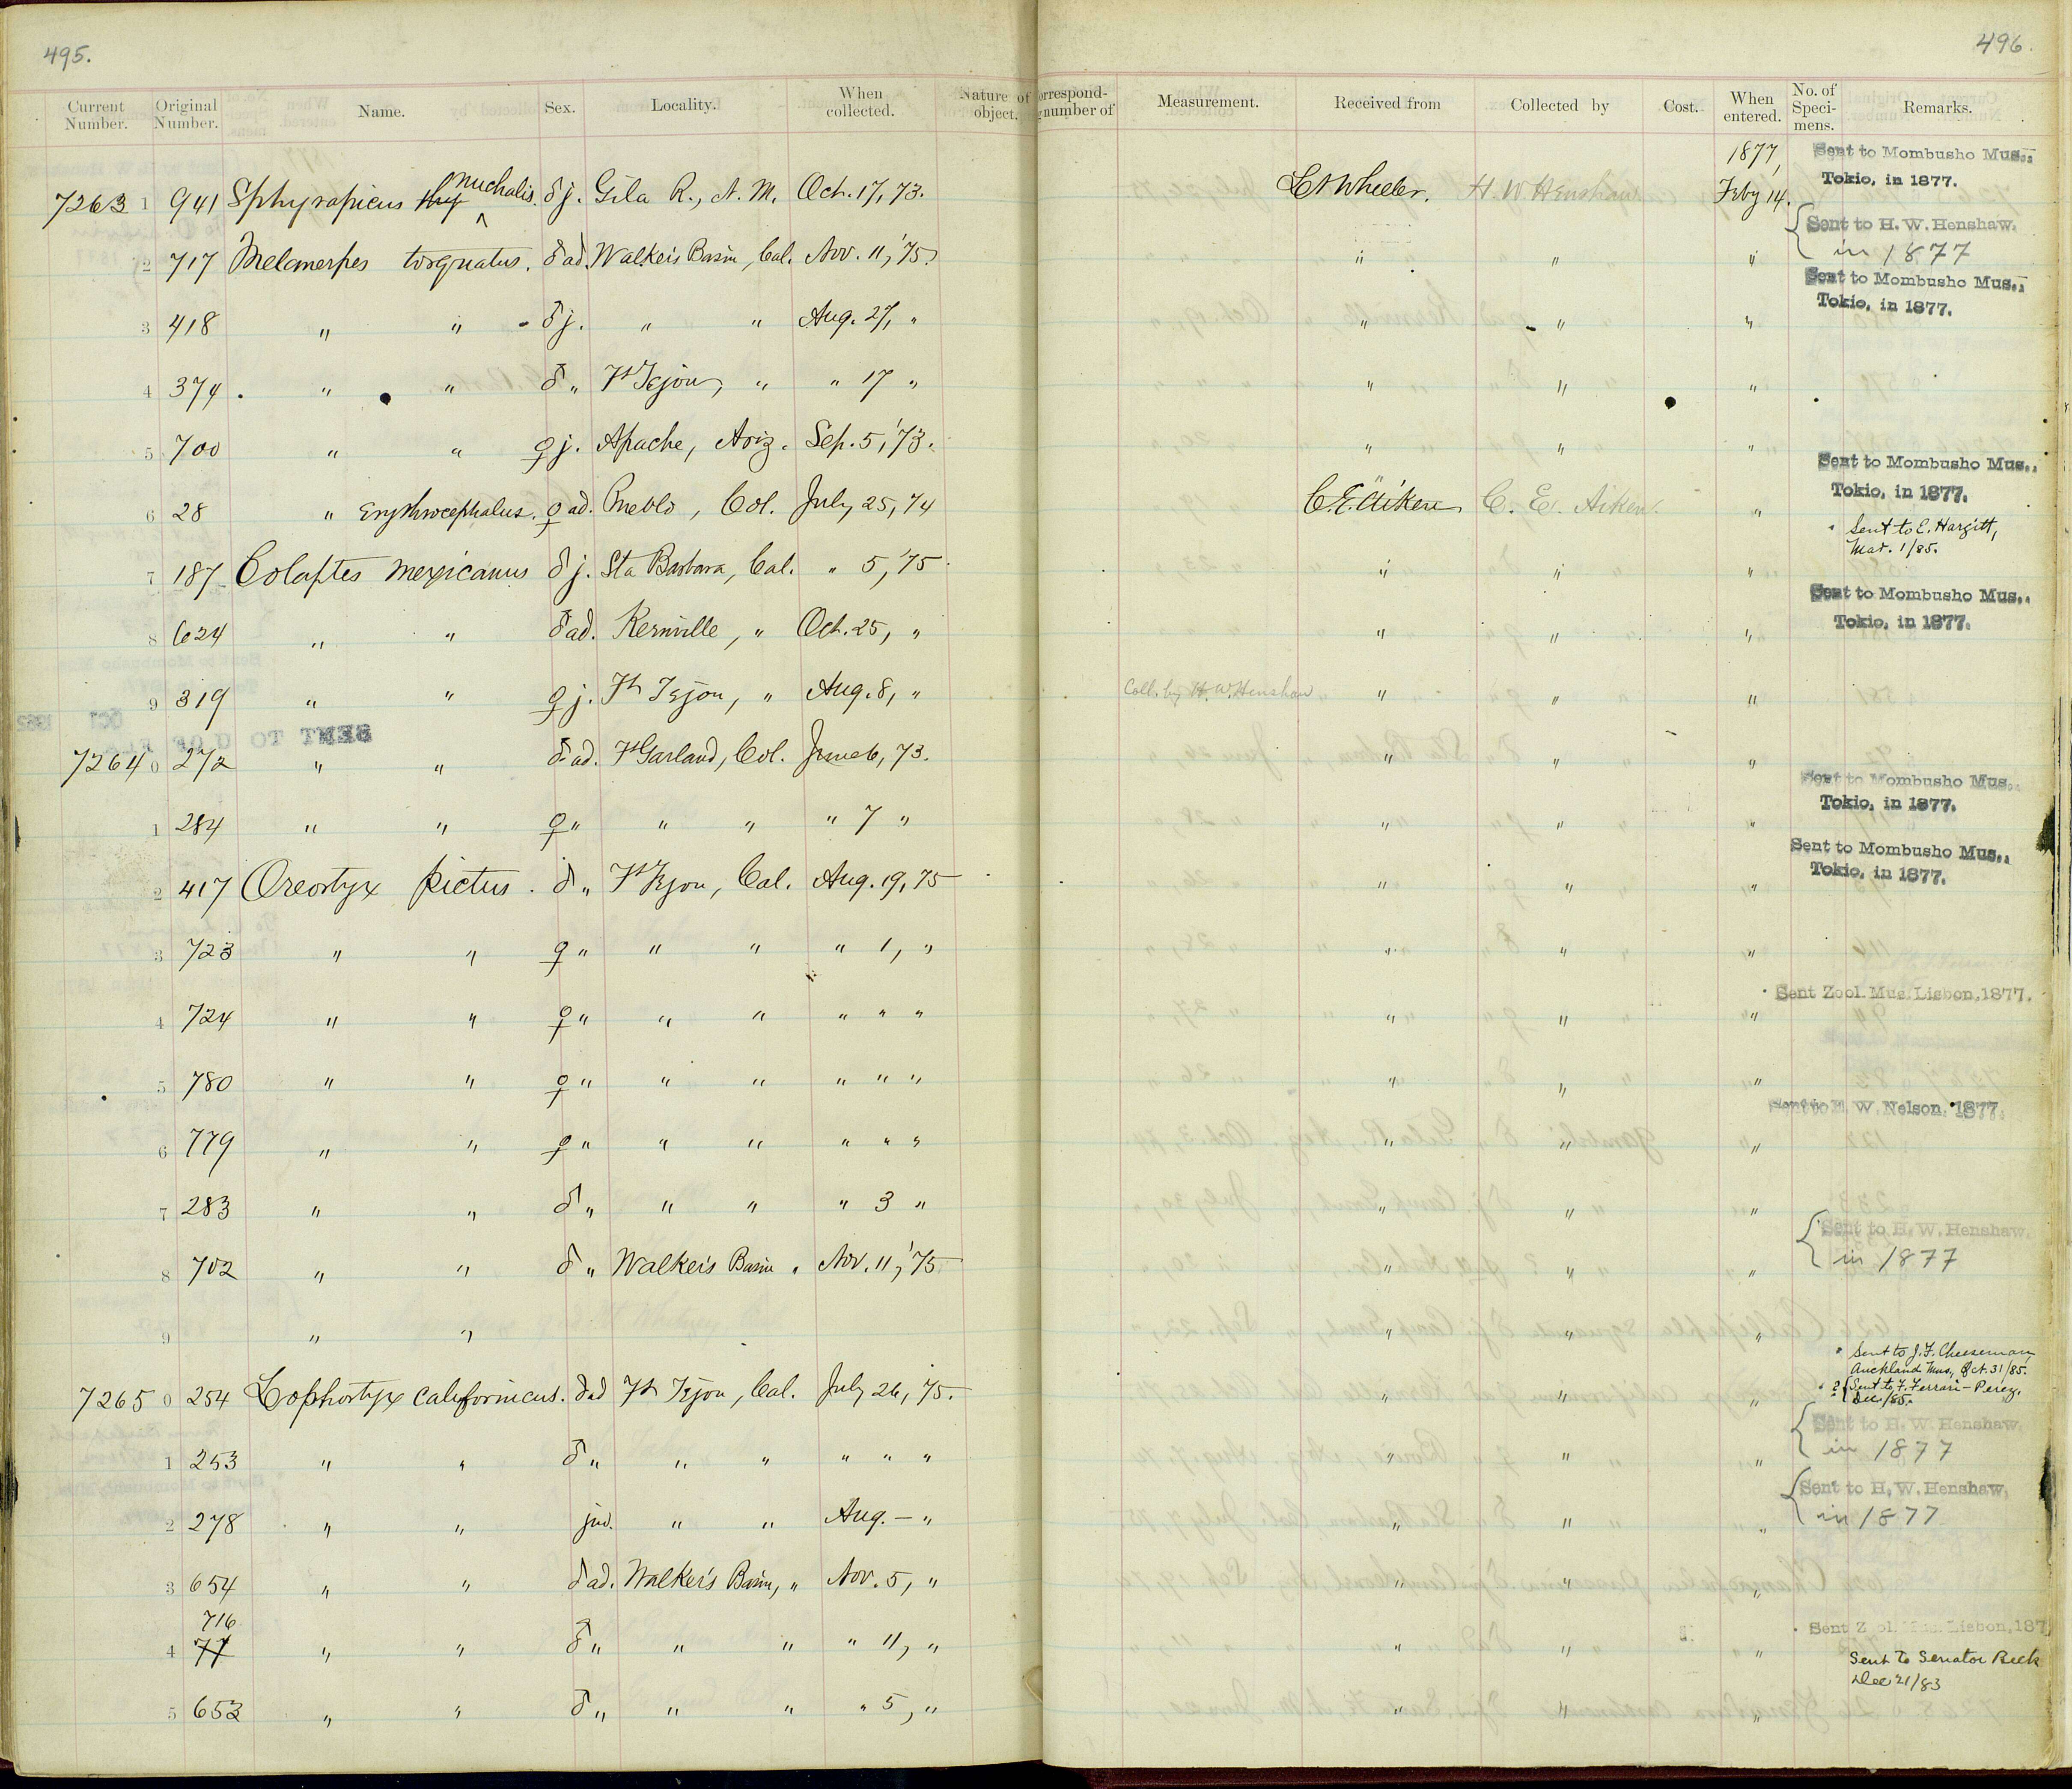 495.
496.
Current Number. Original Number. Name. Sex. Locality. When collected. Nature of object. orrespond- number of Measurement. Received from Collected by Cost. When entered. No. of Speci- mens. Remarks.
1877, Sent to Mombusho Mus., Tokio, in 1877.
7263 1 941 Sphyrapicus thy nuchalis. ♂ j. Gila R., N. M. Oct. 17, 73. Lt Wheeler. H. W. Henshaw Feby 14.
2 717 Melanerpes torquatus. ♂ ad. Walker's Basin, Cal. Nov. 11, '75. " " " { Sent to H. W. Henshaw. in 1877
3 418 " " ♂ j. " " Aug. 27, " " " " Sent to Mombusho Mus., Tokio, in 1877.
4 374 " " ♂ " Ft Tejon, " " 17 " " " "
5 700 " " ♀ j. Apache, Ariz. Sep. 5, '73. " " "
6 28 " Erythrocephalus. ♀ ad. Pueblo, Col. July 25, 74 C. E. Aiken C. E. Aiken. " Sent to Mombusho Mus., Tokio, in 1877.
7 187 Colaptes mexicanus ♂ j. Sta Barbara, Cal. " 5, '75 " " " Sent to E. Hargitt, Mar. 1/85.
8 624 " " ♂ ad. Kernville, " Oct. 25, " " " " Sent to Mombusho Mus., Tokio, in 1877.
9 319 " " ♀ j. Ft Tejon, " Aug. 8, " Coll. by H. W. Henshaw " " "
SENT TO
7264 0 272 " " ♂ ad. Ft Garland, Col. June 6, 73. " " "
1 284 " " ♀ " " " " 7 " " " " Sent to Mombusho Mus. Tokio, in 1877.
2 417 Oreortyx pictus. ♂ " Ft Tejon, Cal. Aug. 19, 75 " " " Sent to Mombusho Mus., Tokio, in 1877.
3 723 " " ♀ " " " " 1, " " " "
4 724 " " ♀ " " " " " " " " " Sent Zool. Mus. Lisbon, 1877.
5 780 " " ♀ " " " " " " " " "
6 779 " " ♀ " " " " " " " " " Sent to E. W. Nelson, 1877.
7 283 " " ♂ " " " " 3 " " " "
8 702 " " ♂ " Walker's Basin " Nov. 11, '75 " " " { Sent to H. W. Henshaw. in 1877
9 " " " " "
7265 0 254 Lophortyx californicus. ♂ ad Ft Tejon, Cal. July 26, '75. " " " Sent to J. F. Cheeseman, Auckland Mus., Oct. 31/85. ? { Sent to F. Ferrari-Perez, Dec./85.
1 253 " " ♂ " " " " " " " " " { Sent to H. W. Henshaw. in 1877
2 278 " " juv. " " Aug. — " " " " { Sent to H. W. Henshaw, in 1877
3 654 " " ♂ ad. Walker's Basin, " Nov. 5, " " " "
716
4 77 " " ♂ " " " " 11, " " " " Sent Zool. Mus. Lisbon, 187
5 653 " " ♂ " " " " 5, " " " " Sent to Senator Beck Dec 21/83